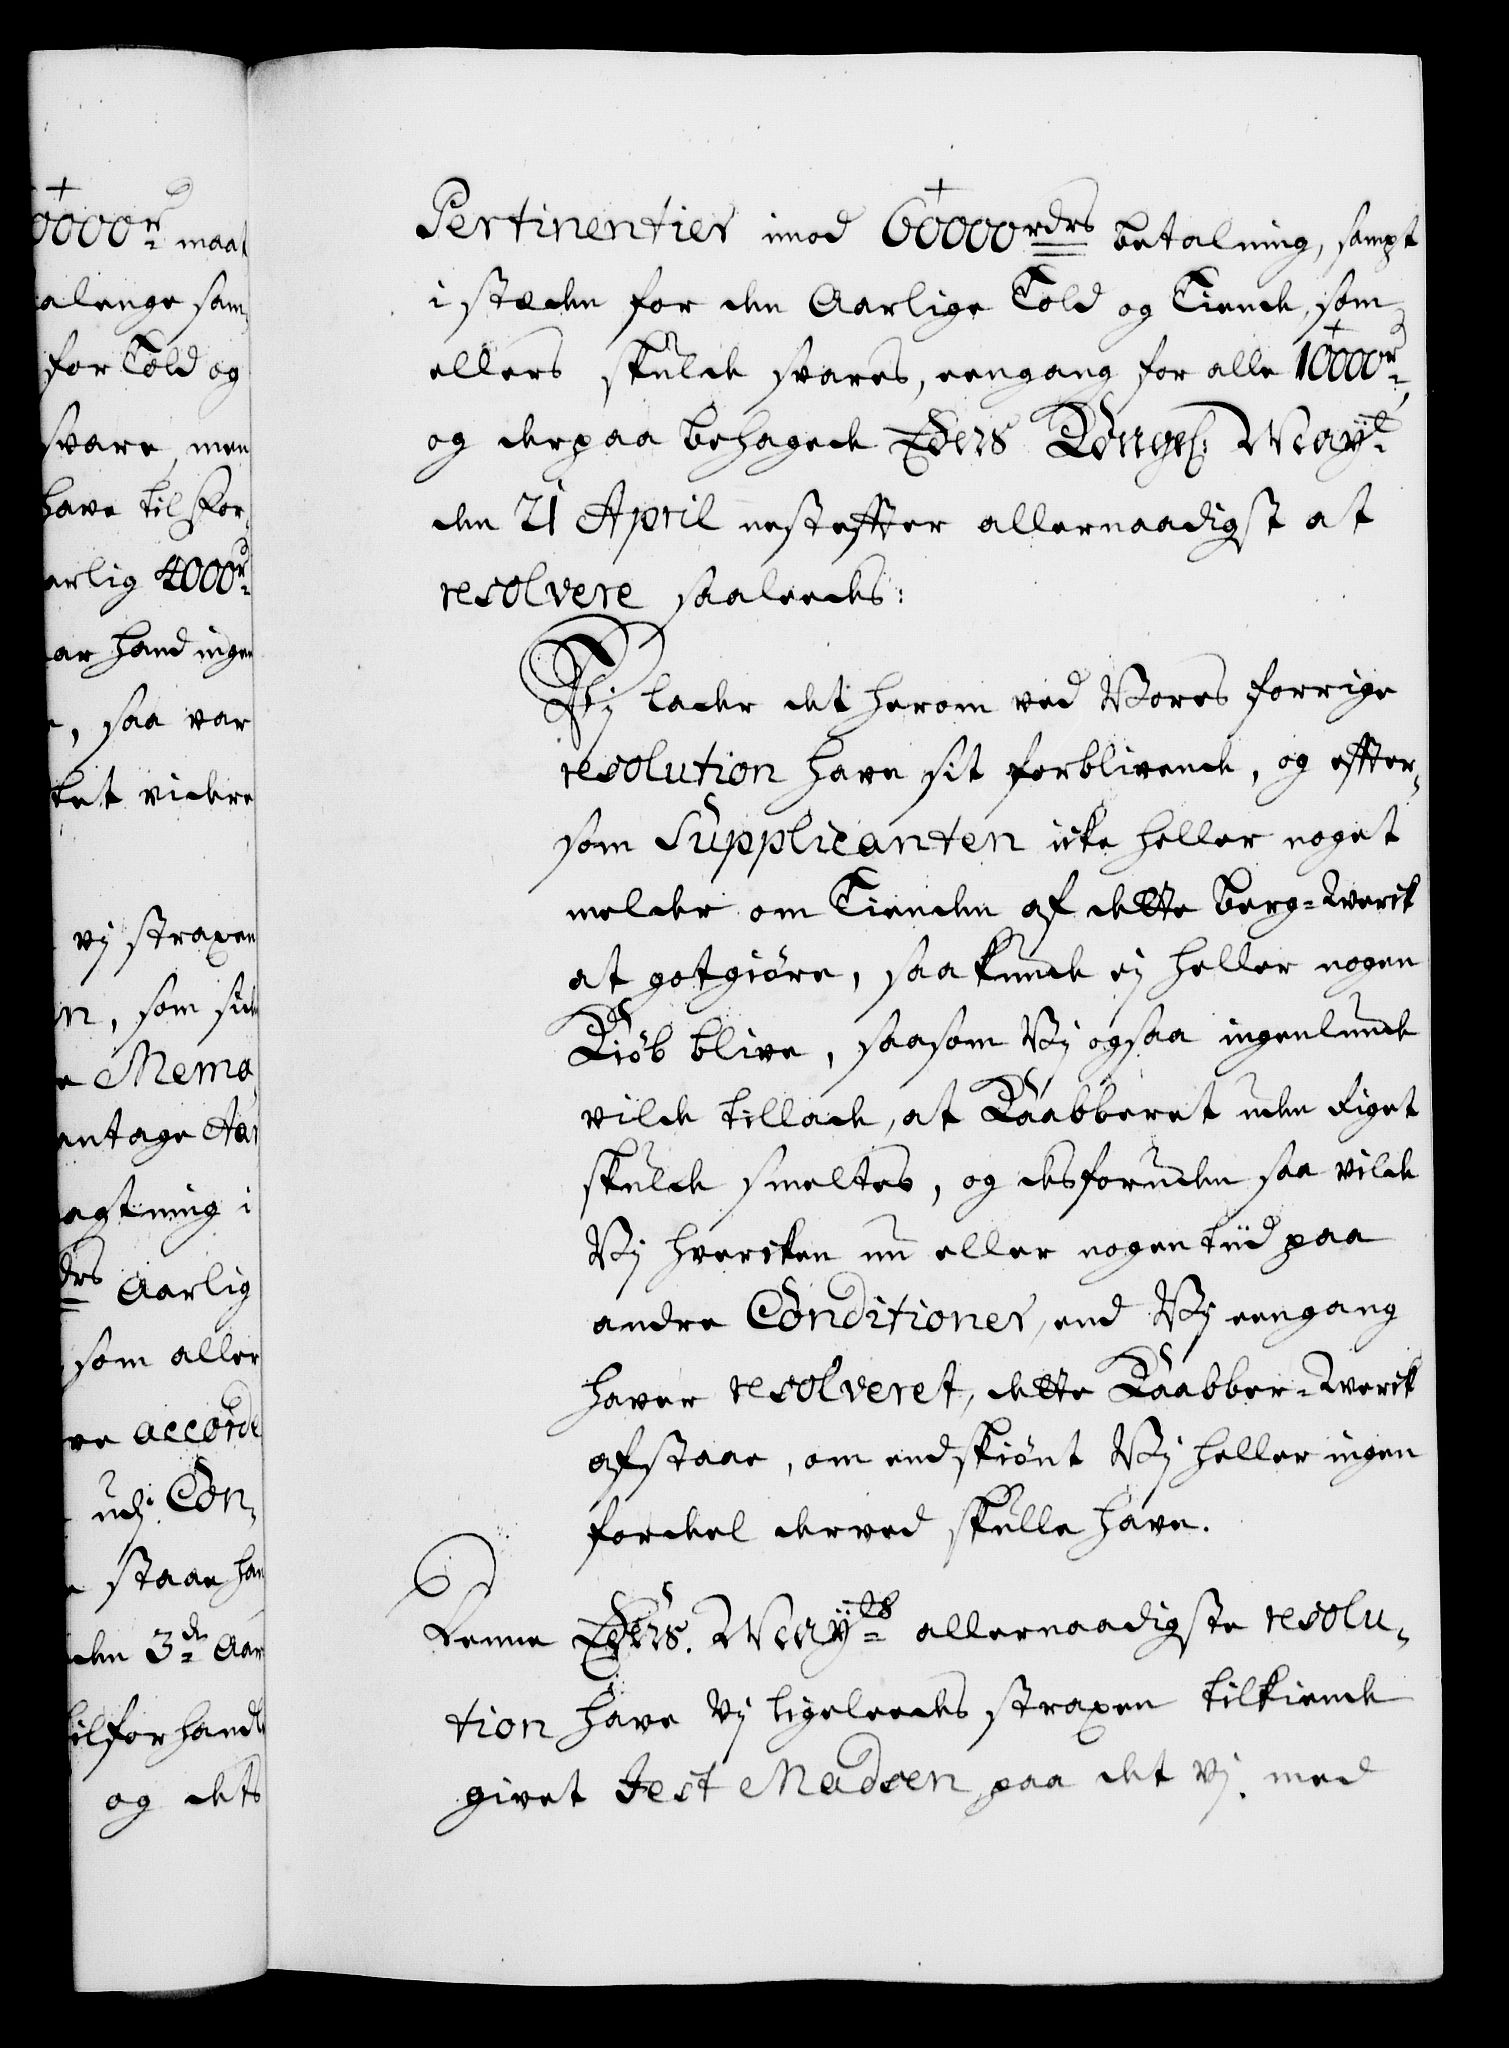 0000rd maat
alenge sam¬
for Told og
svare, men
have til for¬
arlig 4000rd
ar hand ingen
, saa var
ket videre
vj straxen
n, som sid
e Memo¬
entage Aar
agtning i
drs Aarlig
som aller
ve accorde
udj Con¬
e staae han
den 3de Aar
ilforhandl
og dets
Pertinentier imod 60000rdrs betalning, sampt
i stæden for den Aarlige Told og Tiende, som
ellers skulde svares, eengang for alle 10000rd,
og derpaa behagede Eders Kongel: May:t
den 21 April nesteffter allernaadigst at
resolvere saaleedes:
Vj lader det herom ved Vores forrige
resolution have sit forblivende, og effter¬
som Supplicanten icke heller noget
melder om Tienden af dette Berg-Werck
at gotgiöre, saa kunde ej heller nogen
Kiöb blive, saasom Vj ogsaa ingenlunde
vilde tillade, at Kaabberet uden Riget
skulde smeltes, og desforuden saa vilde
Vj hvercken nu eller nogen tiid paa
andre Conditioner, end Vj eengang
haver resolveret, dette Kaabber-Werck
afstaae, om endskiönt Vj heller ingen
fordeel derved skulle have.
Denne Eders May:ts allernaadigste resolu¬
tion have vj ligeleedes straxen tilkiende
givet Jest Madsen, paa det vj med